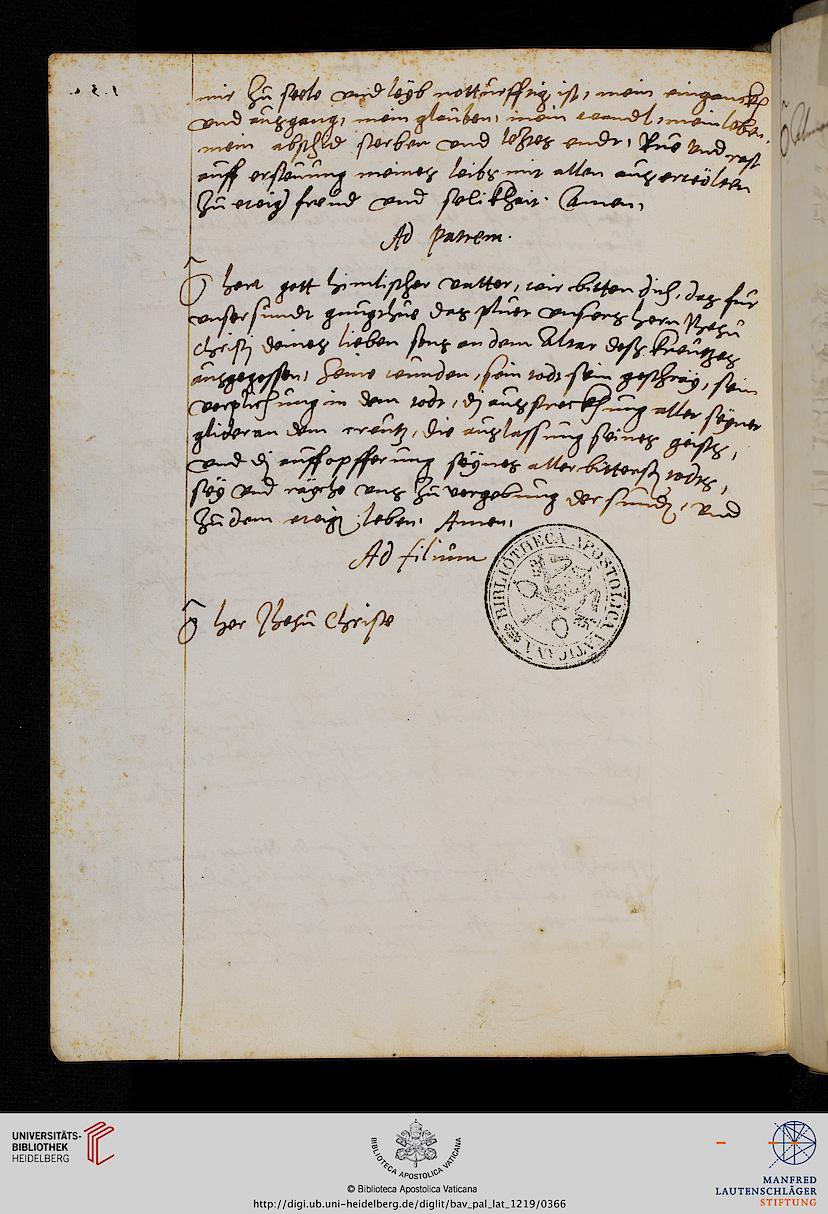 mir zů seele und leyb notturfftig ist, mein eingang
und außgang, mein glauben, mein wandl, mein leben,
mein abschid sterben und letztes endt, Rue und rast
auff ersteuung meines leibs mit allen außerwölten
zů ewig freud und selikhait. Amen,
Ad patrem.
O herr gott himlischer vatter, wir bitten dich, das für
unser sundt gnugthue das pluet unsers hern Jhesu
Christi deines lieben sons an dem Altar deß kreutzes
außgegossen, seine wunden, sein todt sein geschray, sein
in dem todt, di außstreckhung aller seyner
glider an dem creutz, die außlassung seines geists,
und di auffopfferung seynes allerbittersten todts,
sey und rayche uns zů vergebung der sund, und
zů dem ewigen leben. Amen,
Ad filium
O her Jhesu Christe
BIBLIOTHECA APOSTOLICA VATICANA
UNIVERSITÄTS-
BIBLIOTHEK
HEIDELBERG
BIBLIOTECA APOSTOLICA VATICANA
© Biblioteca Apostolica Vaticana
http://digi.ub.uni-heidelberg.de/diglit/bav_pal_lat_1219/0366
MANFRED
LAUTENSCHLÄGER
STIFTUNG